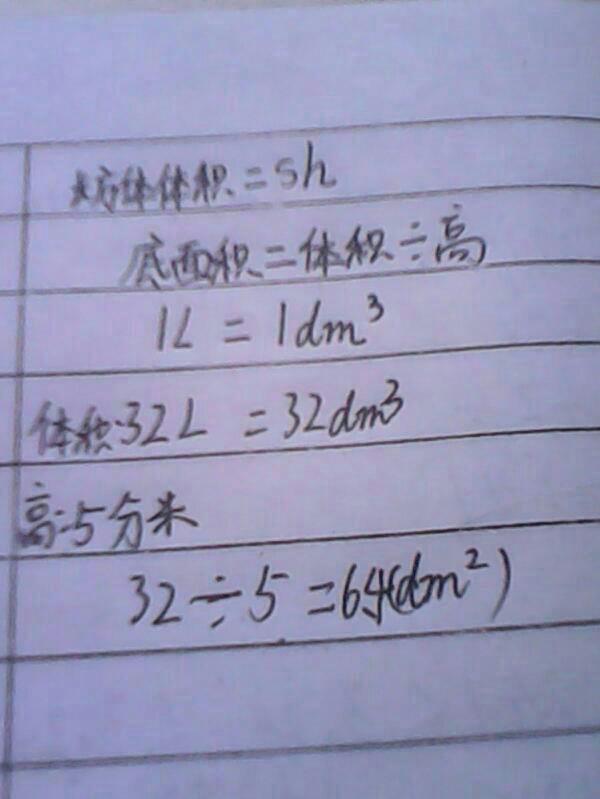 长方体体积=sh
底面积=体积÷高
1L = 1dm³
体积:32L = 32dm³
高:5分米
32÷5=6.4(dm²)